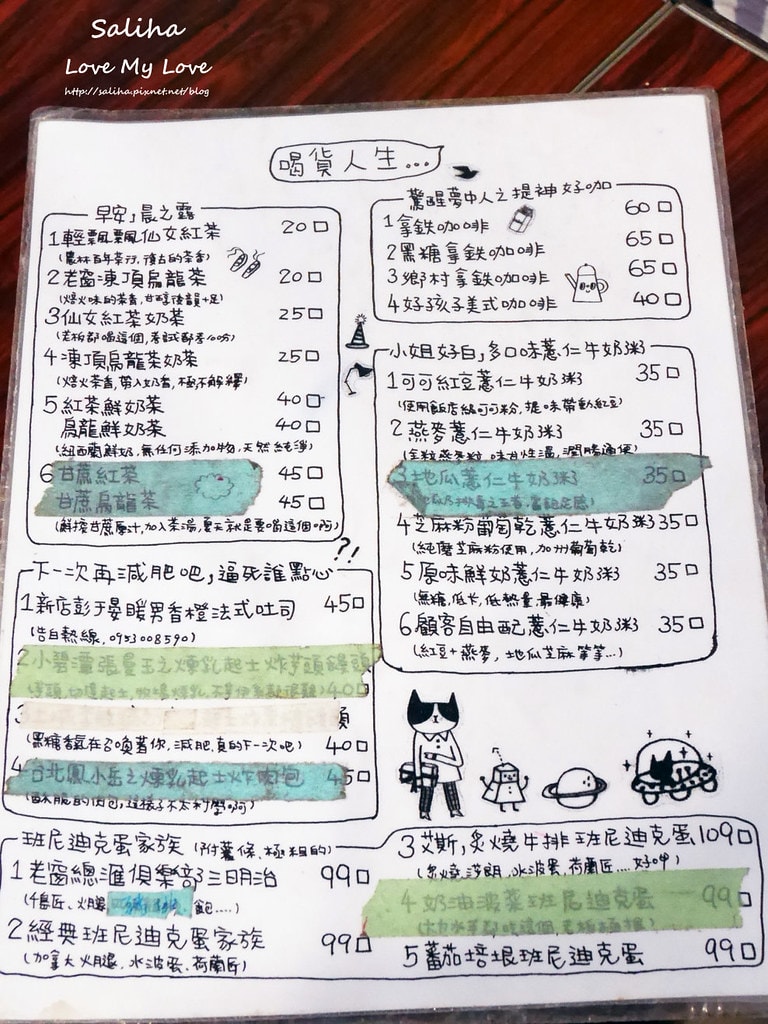 Saliha
Love My Love
http://saliha.pixnet.net/blog
喝貨人生...
早安,晨之露
1輕飄飄仙女紅茶 20
(農林百年茶行,復古的茶香)
2老窩凍頂烏龍茶 20
(焙火味的茶香,甘醇後韻十足)
3仙女紅茶奶茶 25
4凍頂烏龍茶奶茶 25
(焙火茶香,帶入奶香,極不解釋)
5紅茶鮮奶茶 40
烏龍鮮奶茶 40
(紐西蘭鮮奶,無任何添加物,天然純淨)
6甘蔗紅茶 45
甘蔗烏龍茶 45
(鮮榨甘蔗原汁,加入茶湯,夏天就是要喝這個啊)
驚醒夢中人之提神好咖
1拿鉄咖啡 60
2黑糖拿鉄咖啡 65
3鄉村拿鉄咖啡 65
4好孩子美式咖啡 40
小姐好白,多口味薏仁牛奶粥
1可可紅豆薏仁牛奶粥 35
(使用飯店級可可粉,提味帶動紅豆)
2燕麥薏仁牛奶粥 35
(全粒燕麥粒 味甘性溫,潤腸通便)
3地瓜薏仁牛奶粥 35
4芝麻粉葡萄乾薏仁牛奶粥35
(純魔芝麻粉使用,加州葡萄乾)
5原味鮮奶薏仁牛奶粥 35
(無糖,低卡,低熱量最健康)
6顧客自由配薏仁牛奶粥 35
(紅豆+燕麥,地瓜芝麻等等...)
下一次再減肥吧,逼死誰點心 ?!
1新店彭于晏暖男香橙法式吐司 45
(告白熱線,0953008590)
2小碧潭張曼玉之煉乳起士炸芋頭饅頭
40
3 頭
(黑糖香氣在召喚著你,減肥真的下一次吧) 40
4台北鳳小岳之煉乳起士炸肉包 45
班尼迪克蛋家族 (附薯條、極粗的)
1老窩總滙俱樂部三明治 99
(千島醬、火腿 飽....)
2經典班尼迪克蛋家族 99
(加拿大火腿、水波蛋、荷蘭醬)
3艾斯,炙燒牛排班尼迪克蛋109
4奶油波菜班尼迪克蛋 99
5蕃茄培根班尼迪克蛋 99